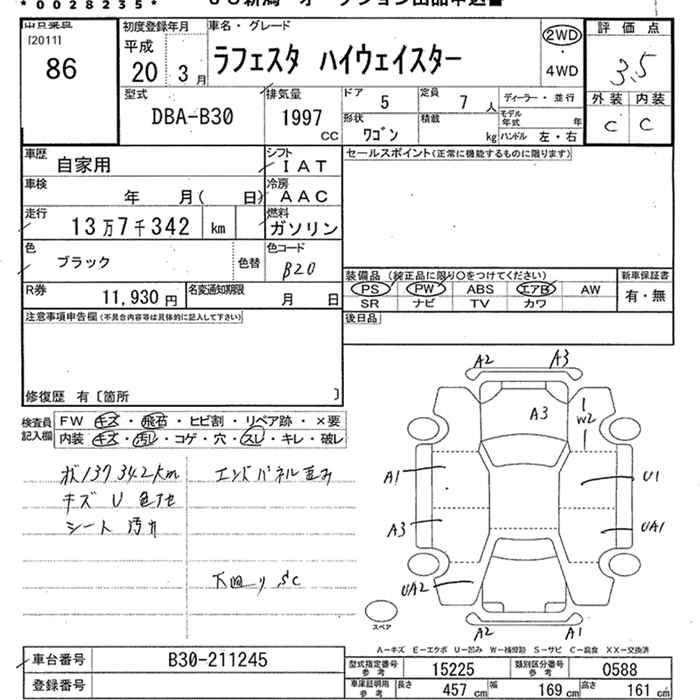 *0028235*
[2011]
86
初度登録年月
平成
20 3月
車名・グレード
ラフェスタ ハイウェイスター
2WD
・
4WD
評価点
3.5
外装 内装
C C
型式
DBA-B30
排気量
1997
CC
ドア 5
定員 7人
形状 ワゴン
積載 kg
ディーラー・並行
モデル年式 年
ハンドル 左・右
車歴
自家用
シフト
IAT
車検
年 月( 日)
冷房
AAC
走行
13万7千342 km
燃料
ガソリン
色
ブラック
色替
色コード
B20
R券
11,930円
名変通知期限
月 日
セールスポイント(正常に機能するものに限ります)
装備品(純正品に限り○をつけてください)
PS PW ABS エアB AW
SR ナビ TV カワ
新車保証書
有・無
後日品
注意事項申告欄(不具合内容等は具体的に記入して下さい)
修復歴 有〔箇所 〕
検査員
記入欄
FW キズ・飛石・ヒビ割・リペア跡・×要
内装 キズ・汚レ・コゲ・穴・スレ・キレ・破レ
137342km
エンドパネル歪み
キズ U 色アセ
シート 汚れ
下廻りSC
A2 A3
A3
W2
A1
U1
A3
UA1
UA2
A2 A1
スペア
A-キズ E-エクボ U-凹み W-補修跡 S-サビ C-腐食 XX-交換済
車台番号
B30-211245
登録番号
型式指定番号
参考
15225
類別区分番号
参考
0588
車庫証明用
参考
長さ 457cm
幅 169cm
高さ 161cm